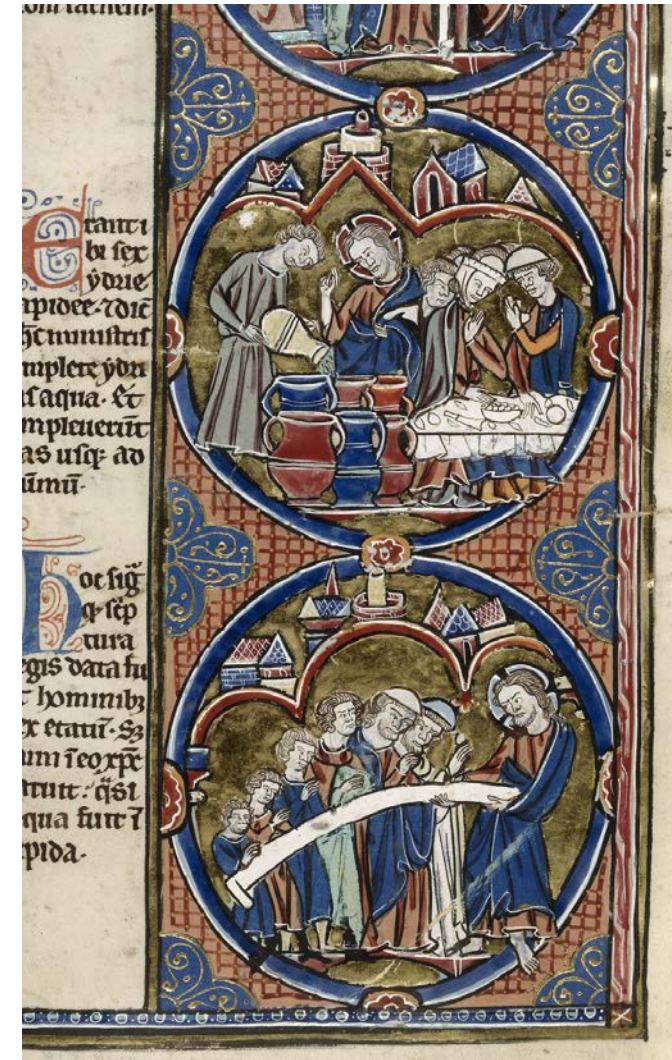 Erant i
bi sex
ydrie
apidee. dic̄
h̄c ministris
mplete ydri
as aqua. Et
mpleuerūt
as usq; ad
ūmū.
Hoc sig̅
q̄ sc̄p
tura
egis data fu
t hominib;
ex etatū. S;
um ī eo xp̄c
qua fuit ī
pida.